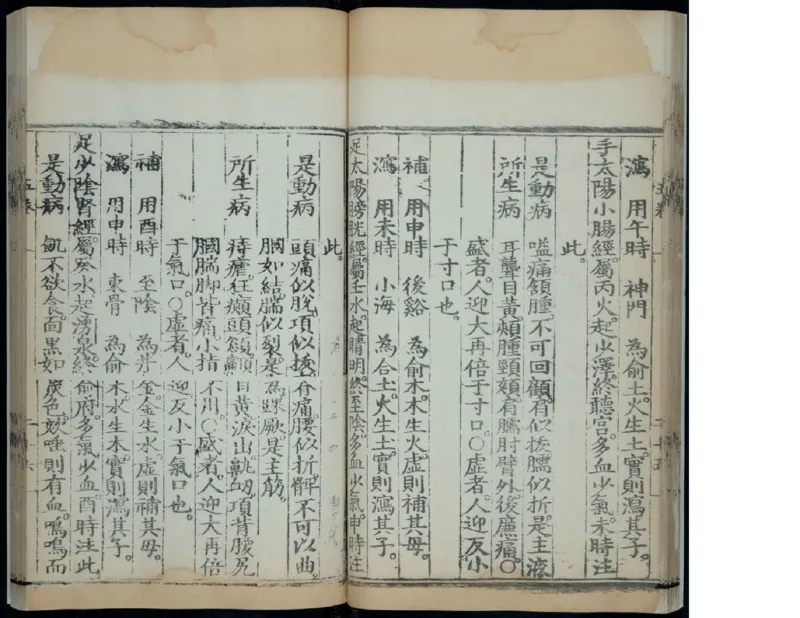 瀉　用午時　神門　為俞土。火生土。實則瀉其子。
手太陽小腸經。屬丙火。起少澤。終聽宮。多血少氣。未時注
此。
是動病　嗌痛頷腫。不可回顧。肩似拔。臑似折。是主液
所生病　耳聾目黃。頰腫。頸頷肩臑肘臂外後廉痛。○
盛者。人迎大再倍于寸口。○虛者。人迎反小
于寸口也。
補　用申時　後谿　為俞木。木生火。虛則補其母。
瀉　用未時　小海　為合土。火生土。實則瀉其子。
足太陽膀胱經。屬壬水。起睛明。終至陰。多血少氣。申時注
此。
是動病　頭痛似脫。項似拔。脊痛腰似折。髀不可以曲。
膕如結。腨似裂。是為踝厥。是主筋。
所生病　痔瘧狂癲。頭顖頂痛。目黃淚出。鼽衄。項背腰尻
膕腨脚皆痛。小指不用。○盛者。人迎大再倍
于氣口。○虛者。人迎反小于氣口也。
補　用酉時　至陰　為井金。金生水。虛則補其母。
瀉　用申時　束骨　為俞木。水生木。實則瀉其子。
足少陰腎經。屬癸水。起湧泉。終俞府。多氣少血。酉時注此
是動病　飢不欲食。面黑如炭色。咳唾則有血。鳴鳴而